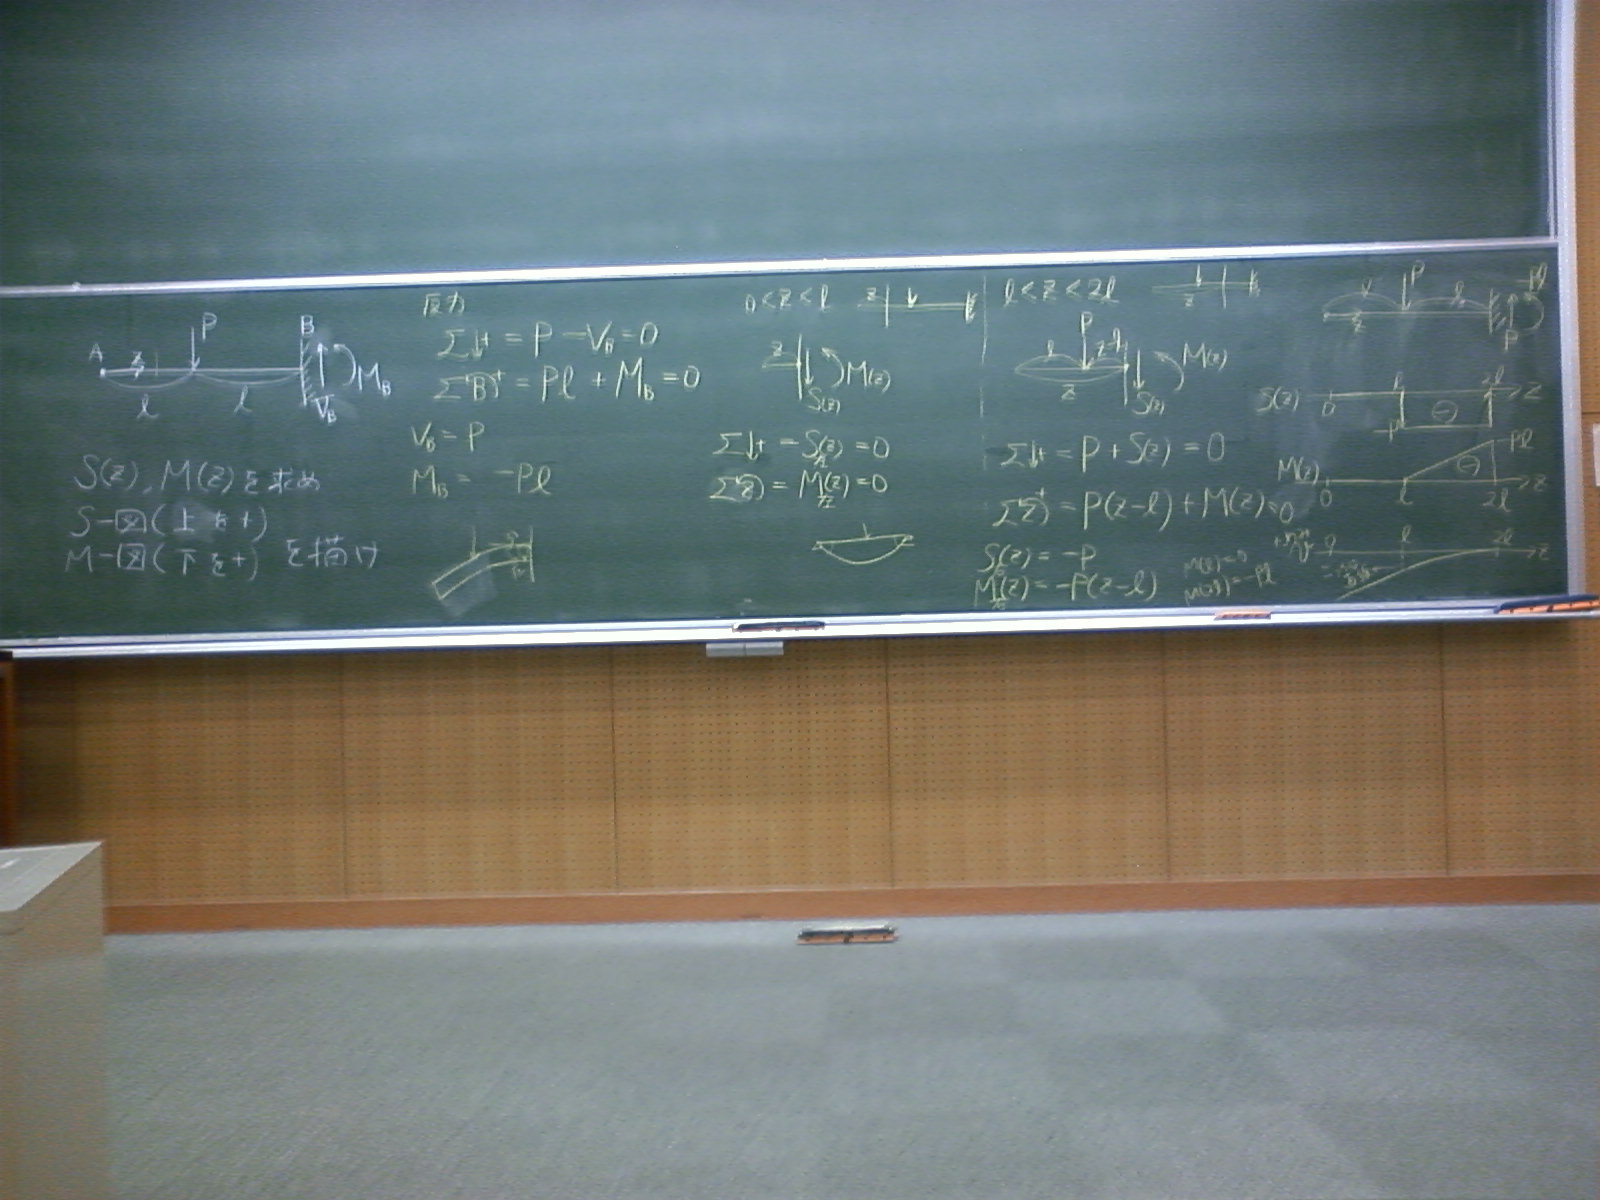 A z P B
l l V_B M_B
S(z), M(z)を求め
S-図(上を+)
M-図(下を+) を描け
反力
Σ↓+ = P - V_B = 0
ΣB)+ = Pl + M_B = 0
V_B = P
M_B = -Pl
0 < z < l
z
z M(z)
S(z)
Σ↓+ = S(z) = 0
Σz) = M(z) = 0
l < z < 2l
z
P
l z-l M(z)
z S(z)
Σ↓+ = P + S(z) = 0
Σz)+ = P(z-l) + M(z) = 0
S(z) = -P
M(z) = -P(z-l)
M(l) = 0
M(2l) = -Pl
l P l -Pl
z P
S(z) 0 l 2l z
-P ⊖
-Pl
M(z) ⊖
0 l 2l z
0 l 2l z